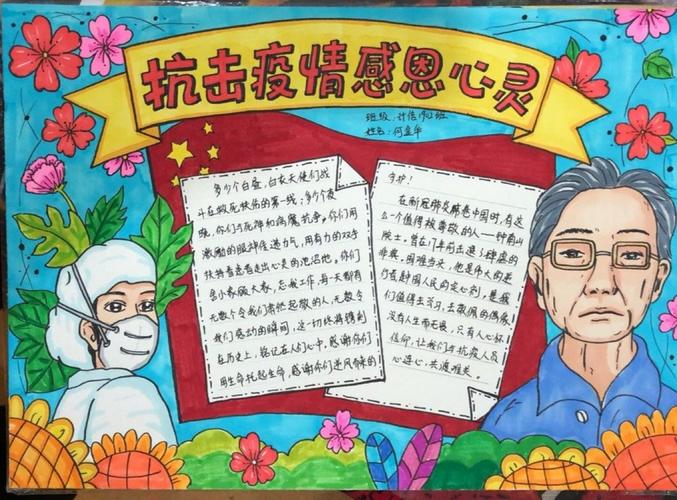 抗击疫情感恩心灵
班级：计信1902班
姓名：何金华
多少个白昼，白衣天使们战
斗在救死扶伤的第一线；多少个夜
晚，你们与死神和病魔抗争。你们用
激励的眼神传递力气，用有力的双手
扶持着患者走出心灵的沼泽地，你们
舍小家顾大家，忘我工作，每一天都有
无数个令我们肃然起敬的人，无数令
我们感动的瞬间，这一切终将镌刻
在历史上，铭记在人们心中，感谢你们
用生命托起生命，感谢你们逆风而来的
守护！
在新冠肺炎席卷中国时，有这
么一个值得被尊敬的人——钟南山
院士。曾在17年前击退了肆虐的
非典，国难当头，他是伟大的逆
行者是中国人民的定心剂，是我
们值得去学习、去敬佩的偶像
没有人生而无畏，只有人心怀
信仰，让我们与抗疫人员
心连心，共渡难关。